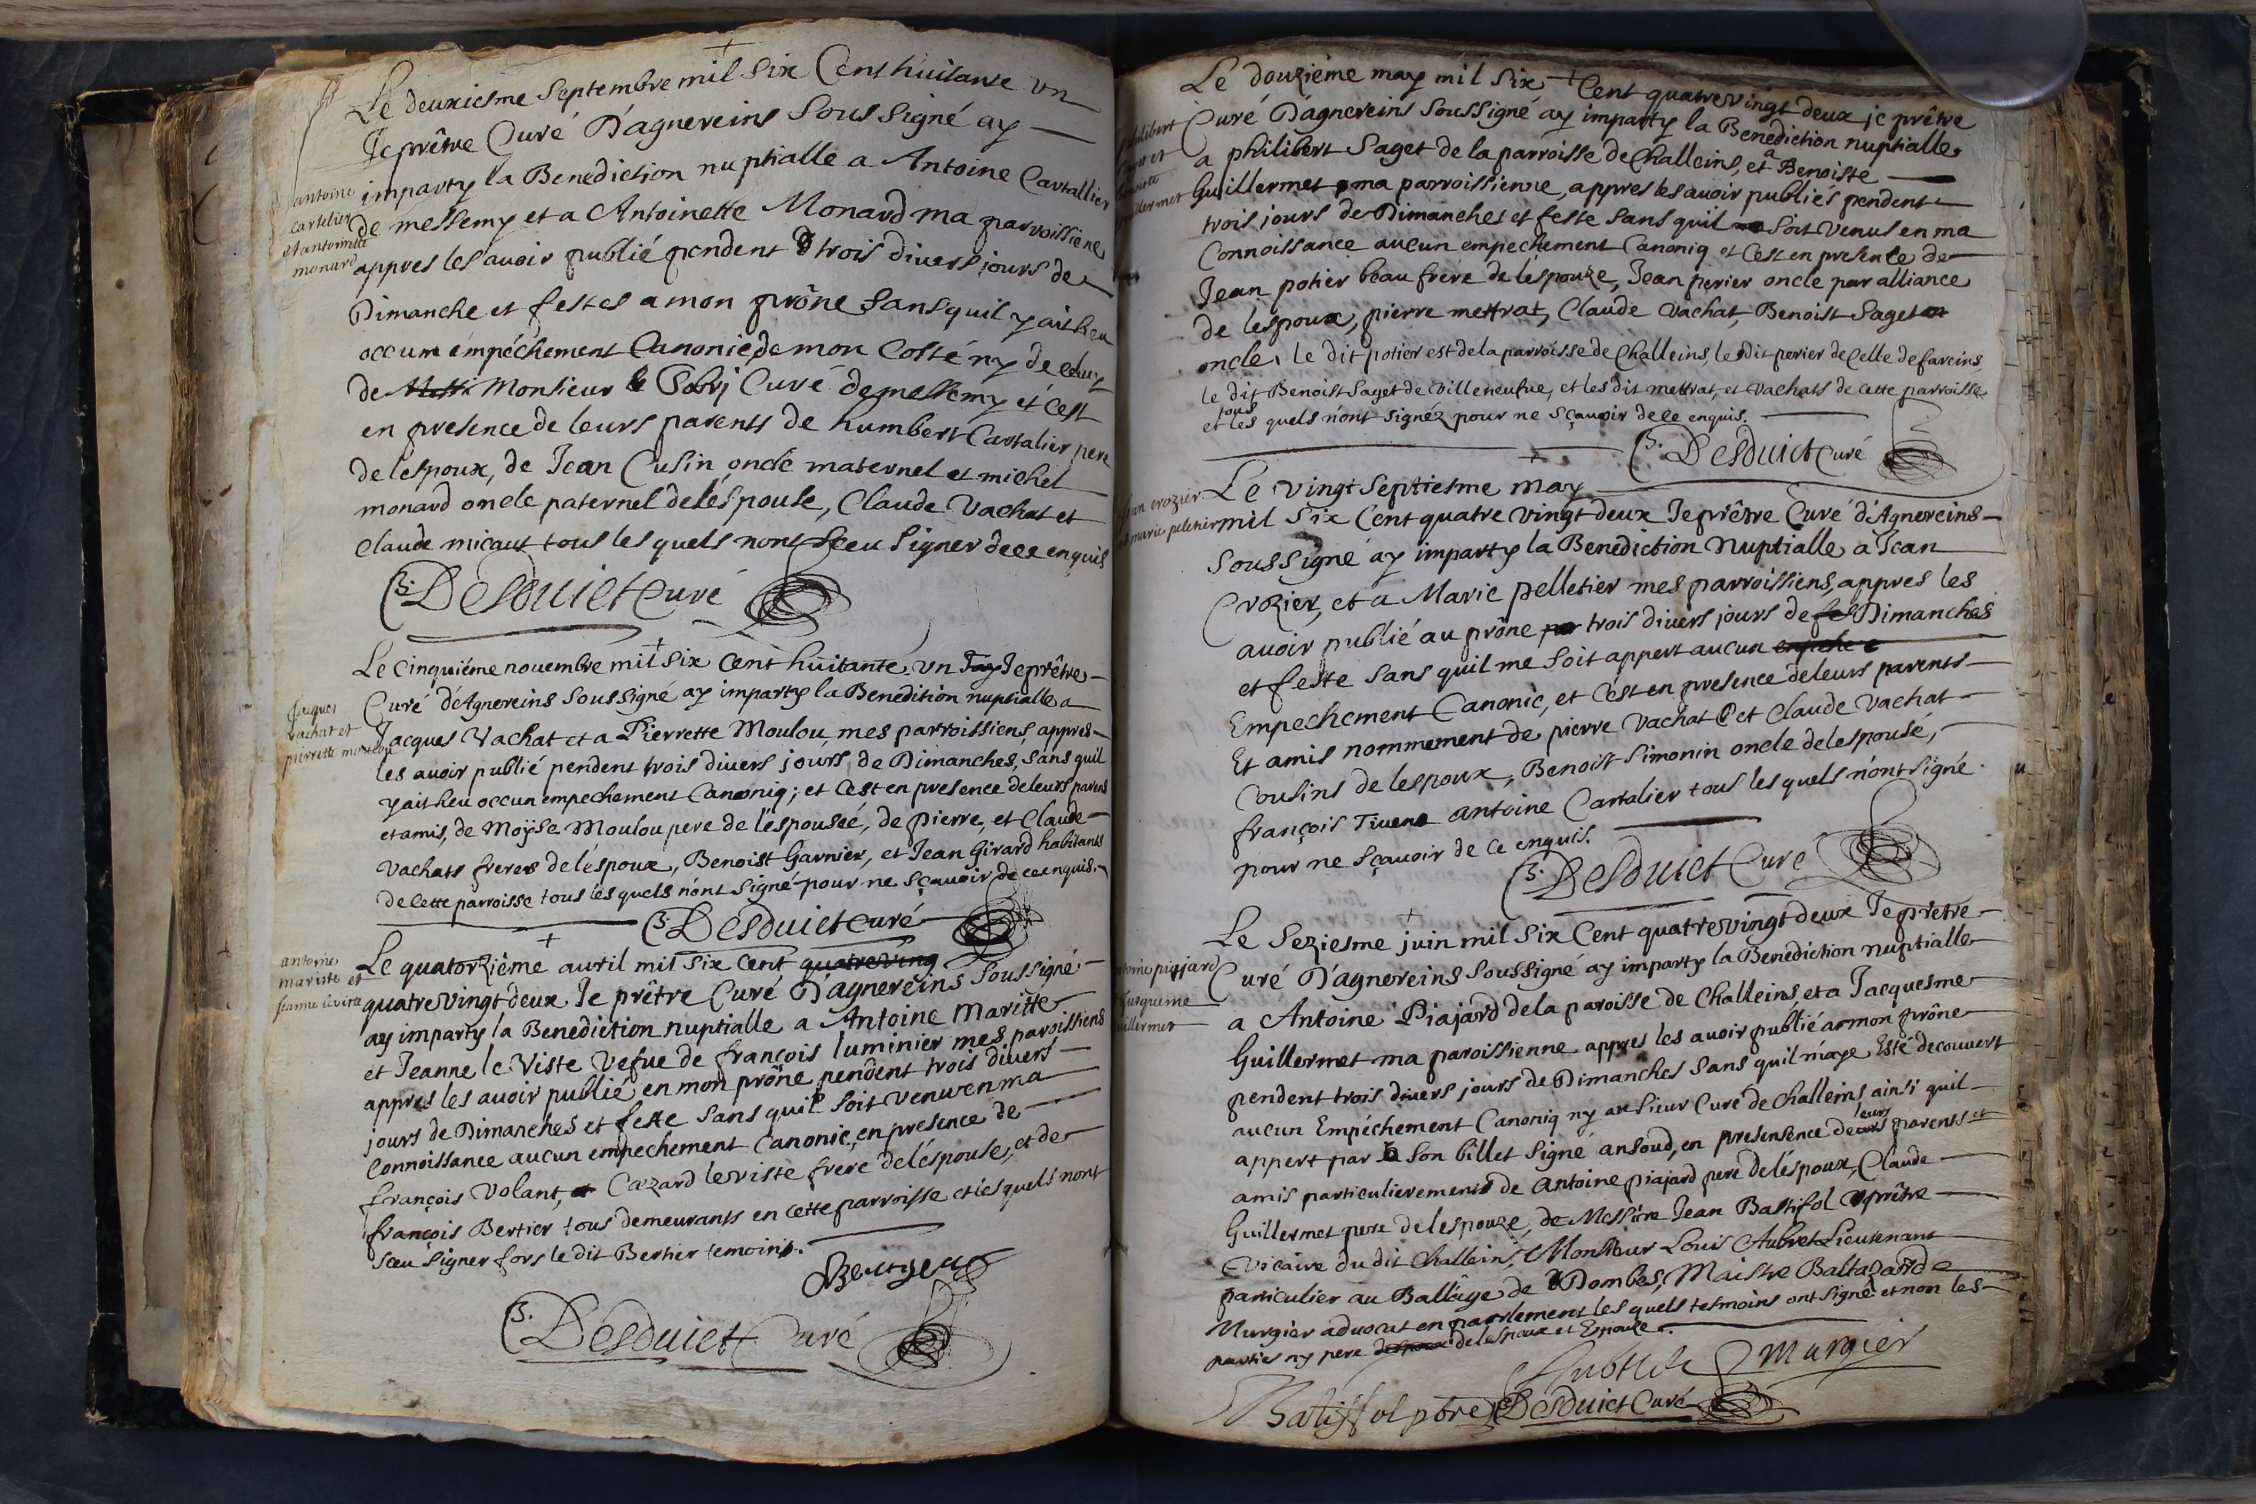 Le deuxiesme Septembre mil Six Cent huitante un
Je prêtre Curé D'agnereins Sous Signé ay
imparty la Benediction nuptialle a Antoine Cartallier
de messemy et a Antoinette Monard ma parroissiene
appres les avoir publié pendent trois divers jours de
Dimanche et festes a mon prône Sans quil y ait heu
occun empéchement Canonic de mon Costé ny de Celuy
de Monsieur Curé de messemy et c'est
en presence de leurs parents de humbert Cartalier pere
de lespoux, de Jean Cusin oncle maternel et michel
monard oncle paternel de léspouse, Claude Vachat et
Claude micaut tous les quels nont Sceu Signer de ce enquis
B. Desduiet Curé
antoine
cartelier
et antoinette
monard
Le Cinquiéme novembre mil Six Cent huitante un Je prêtre
Curé d'Agnereins Soussigné ay imparty la Benedition nuptialle a
Jacques Vachat et a Pierrette Moulou, mes parroissiens, appres
les avoir publié pendent trois divers jours de Dimanches, Sans quil
y ait heu occun empechement Canoniq; et C'est en presence de leurs parens
et amis, de Moÿse Moulou pere de l'éspouséé, de Pierre, et Claude
Vachats freres de léspoux, Benoist Garnier, et Jean Girard habitants
de Cette parroisse tous lés quels n'ónt Signé pour ne Sçavoir de ce enquis.
B. Desduiet Curé
Jaques
vachat et
pierrette moulou
Le quatorziéme avril mil Six Cent quatre ving
quatre vingt deux Je prêtre Curé D'agnereins Soussigné
ay imparty la Benediction nuptialle a Antoine Maritte
et Jeanne le Viste Vefue de françois luminier mes paroissiens
appres les avoir publié en mon prône pendent trois divers
jours de Dimanches et feste Sans quil Soit venu en ma
Connoissance aucun empechement Canonic, en presence de
françois Volant, Cazard le viste frere de l'éspouse, et de
françois Bertier tous demeurants en Cette parroisse et les quels nont
Sceu Signer fors le dit Bertier temoins.
B. Desduiet Curé
antoine
mariste et
Jeanne levite
Le douziéme may mil Six Cent quatre vingt deux je prêtre
Curé D'agnereins Soussigné ay imparty la Benediction nuptialle
a philibert Saget de la parroisse de Challeins, et a Benoiste
Guillermet ma parroissienne, appres les avoir publiés pendent
trois jours de Dimanches et feste Sans quil Soit Venus en ma
Connoissance aucun empechement Canoniq et C'est en presence de
Jean potier beau frere de léspouze, Jean perier oncle par alliance
de lespoux, pierre mettrat, Claude Vachat, Benoist Saget
oncle, le dit potier est de la parroisse de Challeins, le dit perier de Celle de fareins
le dit Benoist Saget de Villeneufve, et les dit mettrat, et Vachats de Cette parroisse
et tous les quels n'ont Signéz pour ne Sçavoir de ce enquis.
B. Desduiet Curé
Le vingt Septiesme May
mil Six Cent quatre vingt deux Je prêtre Curé d'Agnereins
Soussigné ay imparty la Benediction Nuptialle a Jean
Crozier, et a Marie pelletier mes parroissiens, appres les
avoir publié au prône trois divers jours de Dimanches
et feste Sans quil me Soit appert aucun
Empechement Canonic, et C'ést en presence de leurs parents
Et amis nommement de pierre Vachat et Claude Vachat
Cousins de lespoux, Benoist Simonin oncle de lespousé,
françois antoine Cartalier tous les quels n'ont Signé
pour ne Sçavoir de Ce enquis.
B. Desduiet Curé
et marie peletier
Le Seziesme juin mil Six Cent quatre vingt deux Je prêtre
Curé D'agnereins Soussigné ay imparty la Benediction nuptialle
a Antoine Piajard de la paroisse de Challeins, et a Jacquesme
Guillermet ma paroissienne appres les avoir publié a mon prône
pendent trois divers jours de Dimanches Sans quil m'aye Esté decouvert
aucun Empéchement Canoniq ny au Sieur Curé de Challeins, ainsi quil
appert par Son billet Signé ansoud, en presensence de leurs parents et
amis particulierement de Antoine piajard pere de léspoux, Claude
Guillermet pere de lespouze, de Messire Jean Bastifol prêtre
Vicaire du dit Challeins, Monsieur Louis Aubret Lieutenant
particulier au Ballage de Dombes, Maistre Baltazard
Murgier advocat en parlement les quels tesmoins ont Signé et non les
parties ny pere de lespoux et Epouze.
Murgier
Batiffol pbre B. Desduiet Curé